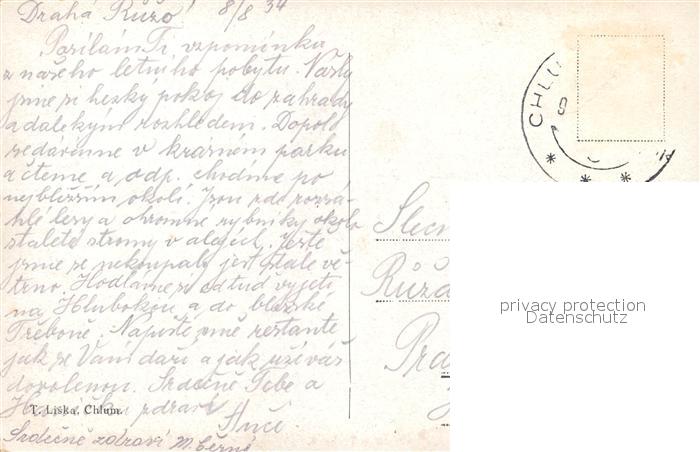 Drahá Růžo! 8/8 34
Posílám Ti vzpomínku
z našeho letního pobytu. Našly
jsme si hezky pokoj do zahrady
a dalekým rozhledem. Dopol.
sedáváme v krasnem parku
a čteme a odp. chodíme po
nejbližším okolí. Jsou zde rozsá-
hlé lesy a ohromne rybniky okolo
staleté stromy v alejích. Ještě
jsme se nekoupaly jest stale vě-
trno. Hodláme si odtud vyjeti
na Hlubokou a do blizské
Třeboně. Napište mně restante
jak se Vám daří a jak užívás
dovolenou. Srdečně Tebe a
zdraví
Srdečně zdraví M. Černá
T. Liska, Chlum.
CHLU
Slečn
Růže
Pra
privacy protection
Datenschutz